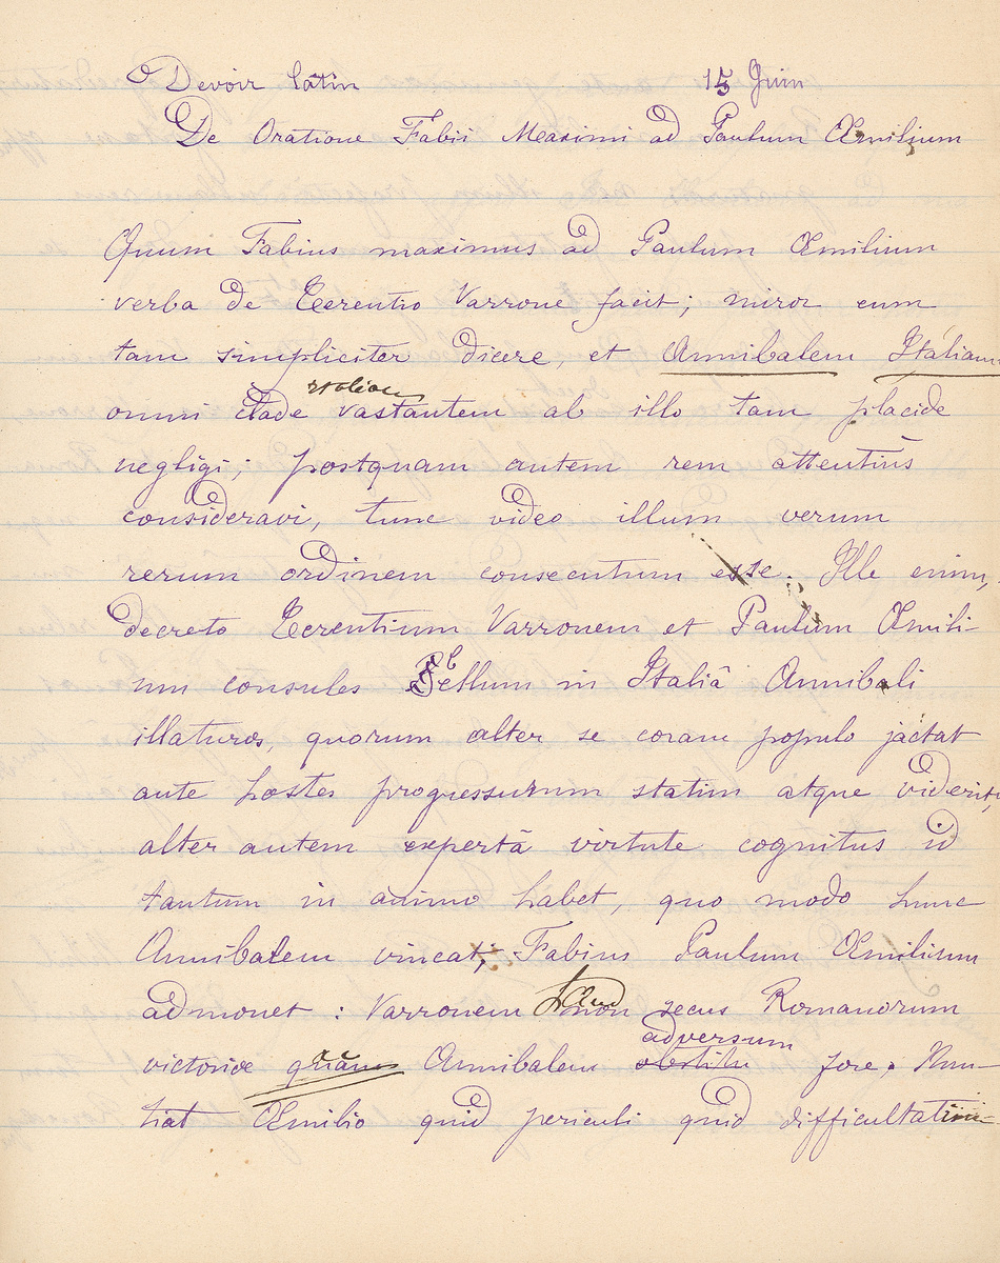 Devoir latin 15 Juin
De Oratione Fabii Maximi ad Paulum Œmilium
Quum Fabius maximus ad Paulum Œmilium
verba de Terentio Varrone facit; miror eum
tam simpliciter dicere, et Annibalem Italiam
omni clade vastantem ab illo tam placide
negligi; postquam autem rem attentiùs
consideravi, tunc video illum verum
rerum ordinem consecutum esse. Ille enim,
decreto Terentium Varronem et Paulum Œmili-
um consules bellum in Italiâ Annibali
illaturos, quorum alter se coram populo jactat
ante hostes progressurum statim atque viderit,
alter autem expertâ virtute cognitus id
tantum in animo habet, quo modo hunc
Annibalem vincat; Fabius Paulum Œmilium
admonet : Varronem haud non secus Romanorum
adversum
victoriæ quàm Annibalem fore. Nun-
tiat Œmilio quid periculi quid difficultatini-